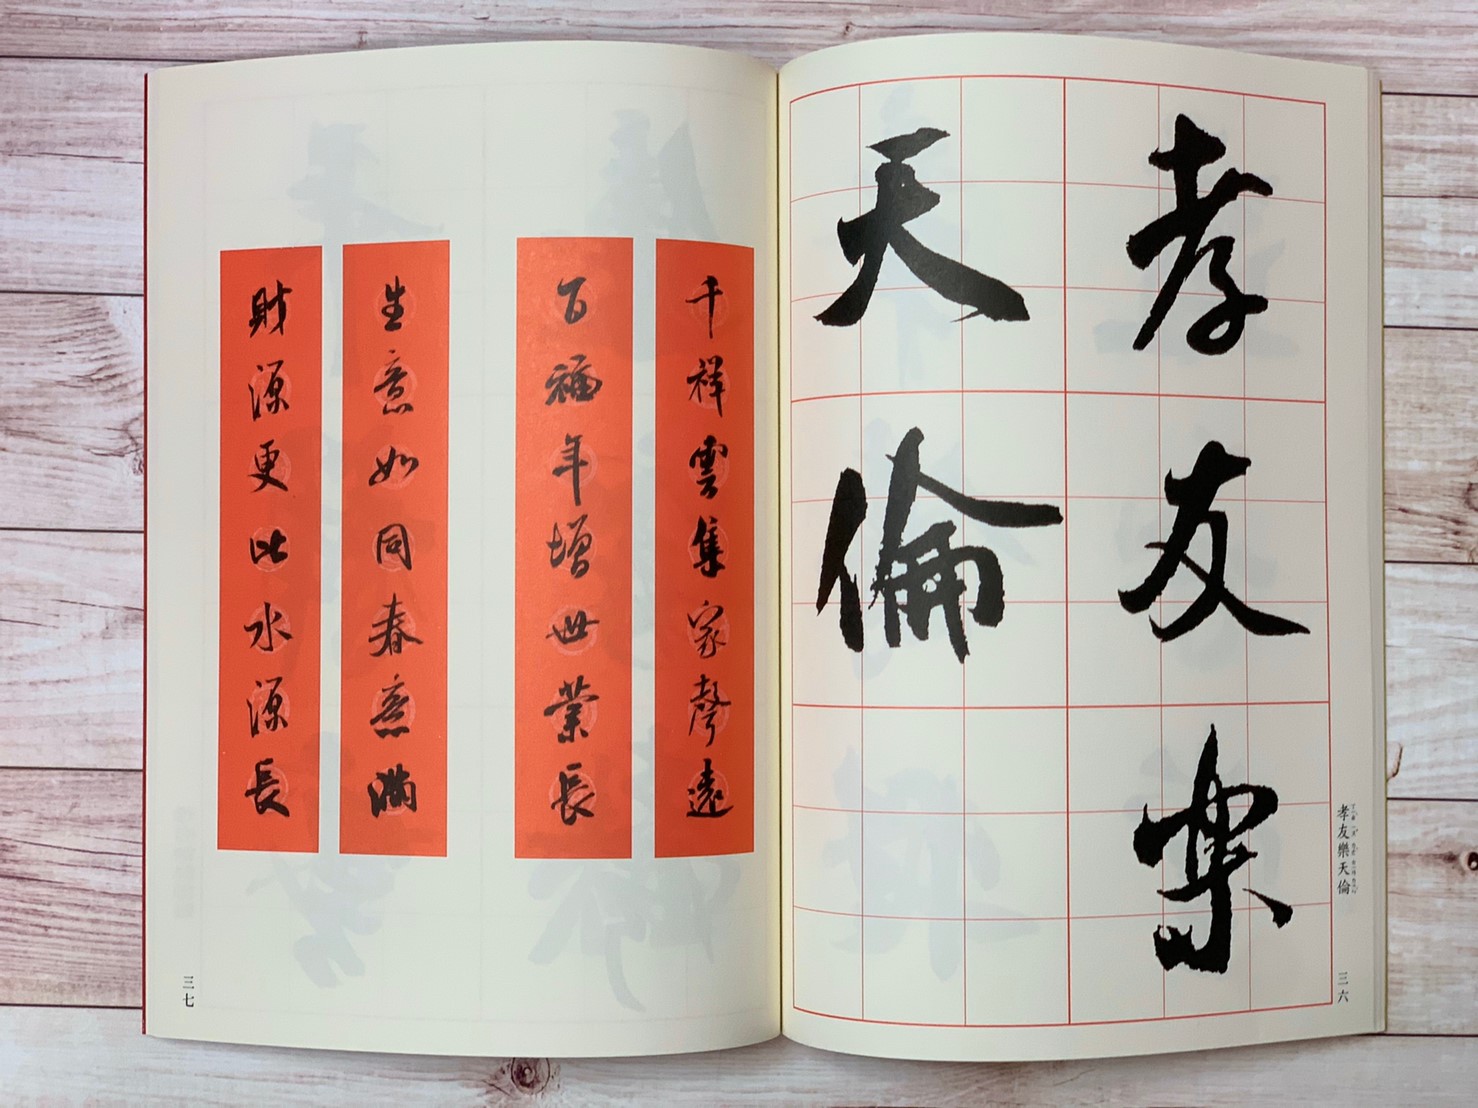 孝友樂
天倫
孝友樂天倫
三六
千祥雲集家聲遠
百福年增世業長
生意如同春意滿
財源更比水源長
三七